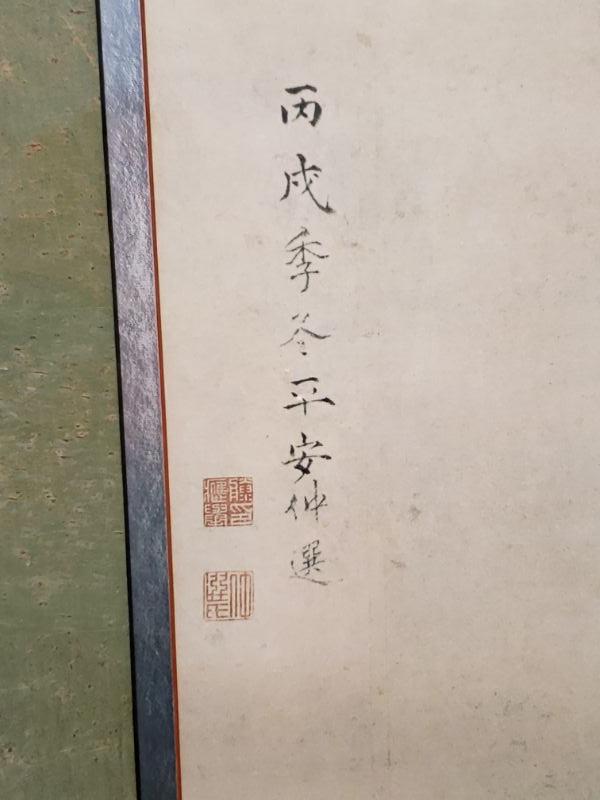 丙戌季冬平安仲選